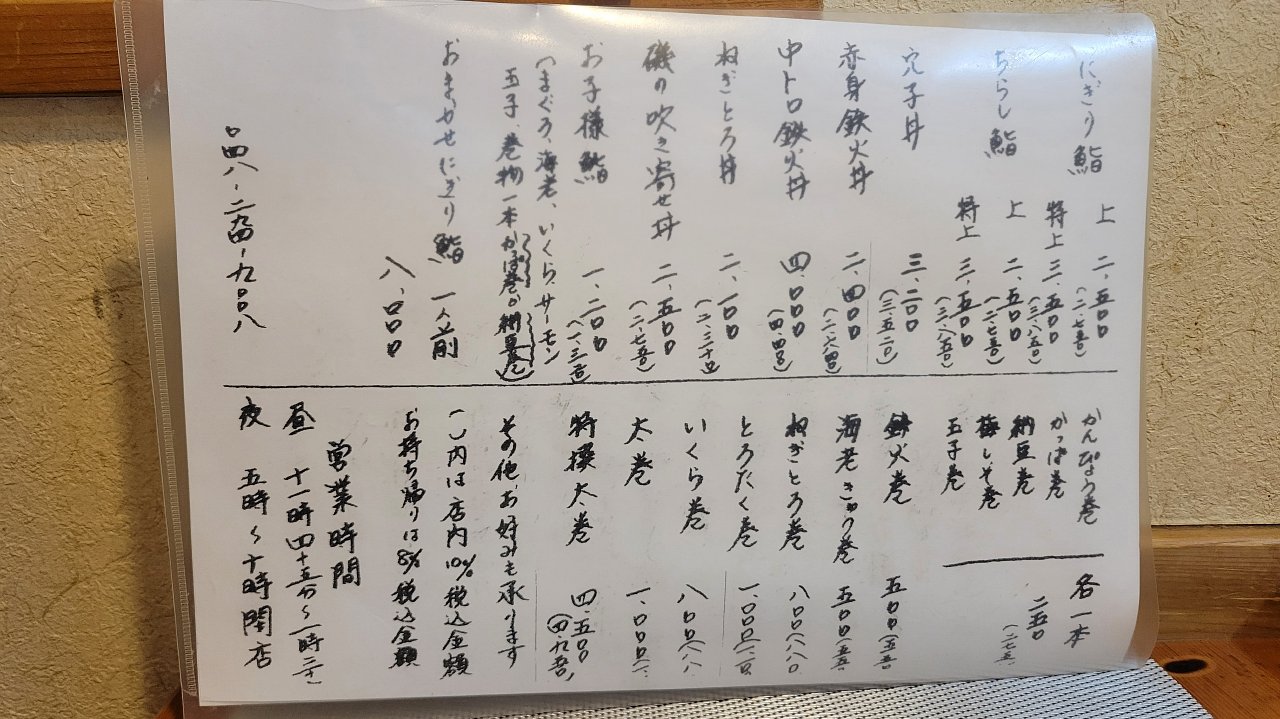 にぎり鮨 上 二、五〇〇
(二、七五〇)
特上 三、五〇〇
(三、八五〇)
ちらし鮨 上 二、五〇〇
(二、七五〇)
特上 三、五〇〇
(三、八五〇)
穴子丼 三、二〇〇
(三、五二〇)
赤身鉄火丼 二、四〇〇
(二、六四〇)
中トロ鉄火丼 四、〇〇〇
(四、四〇〇)
ねぎとろ丼 二、一〇〇
(二、三一〇)
磯の吹き寄せ丼 二、五〇〇
(二、七五〇)
お子様鮨 一、二〇〇
(一、三二〇)
(まぐろ、海老、いくら、サーモン
玉子、巻物一本かっぱ巻か納豆巻)
おまかせにぎり鮨 一人前
八、〇〇〇
〇四八-二九四-九〇〇八
かんぴょう巻
かっぱ巻
納豆巻
梅しそ巻
玉子巻
各一本
二五〇
(二七五
鉄火巻 五〇〇(五五〇
海老きゅう巻 五〇〇(五五
ねぎとろ巻 八〇〇(八八〇
とろたく巻 一、〇〇〇(一、一〇
いくら巻 八〇〇(八八
太巻 一、〇〇〇(一、
特撰太巻 四、五〇〇
(四、九五〇)
その他、お好みも承ります
( )内は店内10%税込金額
お持ち帰りは8%税込金額
営業時間
昼 十一時四十五分〜一時三十
夜 五時〜十時閉店